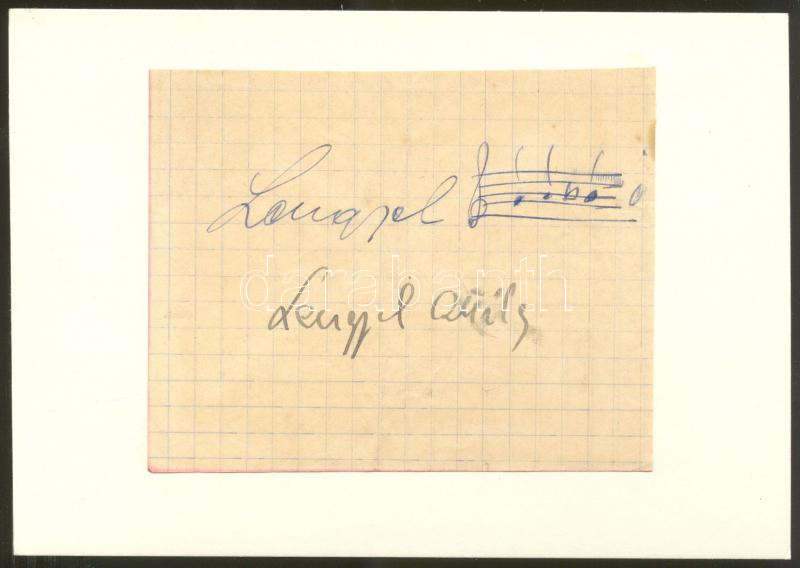 Lengyel
darabanth
Lengyel Attila